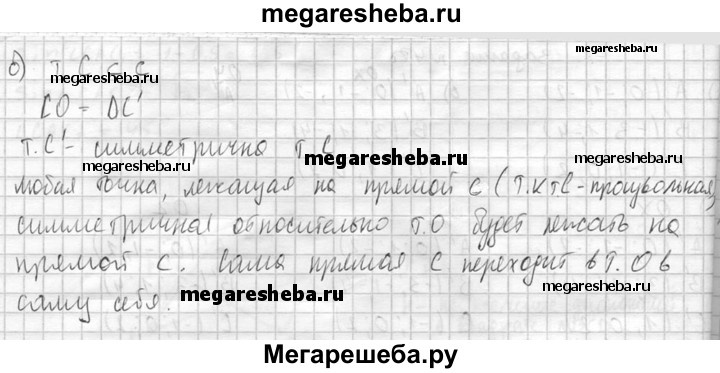 megaresheba.ru
б) т. С ∈ с
megaresheba.ru
megaresheba.ru
СО = ОС'
т. С' - симметрична т. С
megaresheba.ru
megaresheba.ru
любая точка, лежащая на прямой с (т.к т С - произвольная)
симметричная относительно т. О будет лежать на
прямой с. Сама прямая с переходит в т. О в
саму себя.
megaresheba.ru
megaresheba.ru
Мегарешеба.ру